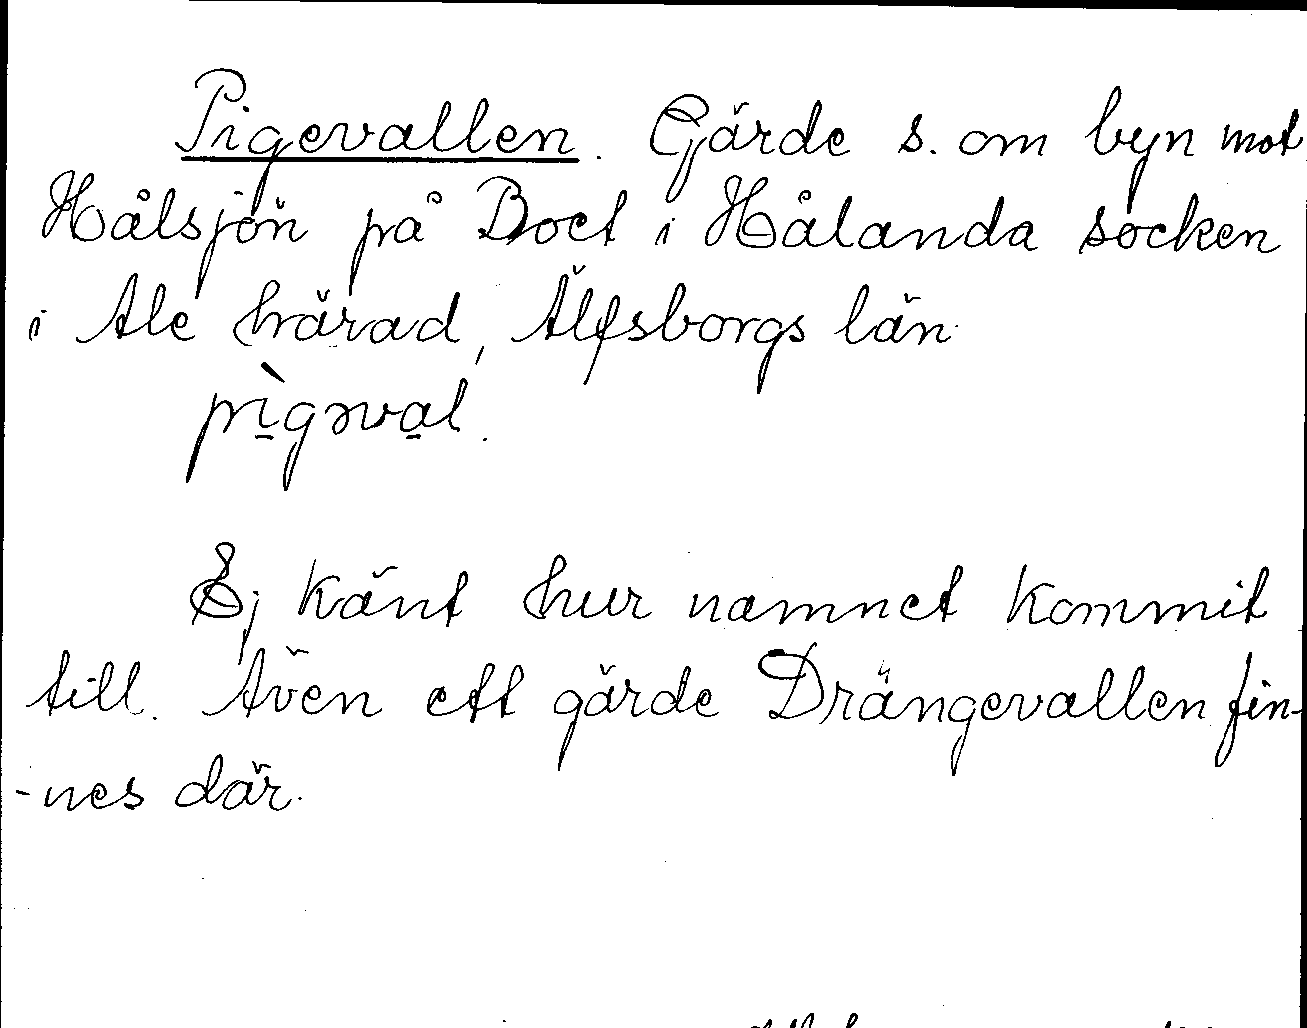 Pigevallen. Gärde s. om byn mot
Hålsjön på Boet i Hålanda socken
i Ale härad, Älfsborgs län.
pìgəval.
Ej känt hur namnet kommit
till. Även ett gärde Drängevallen fin-
-nes där.